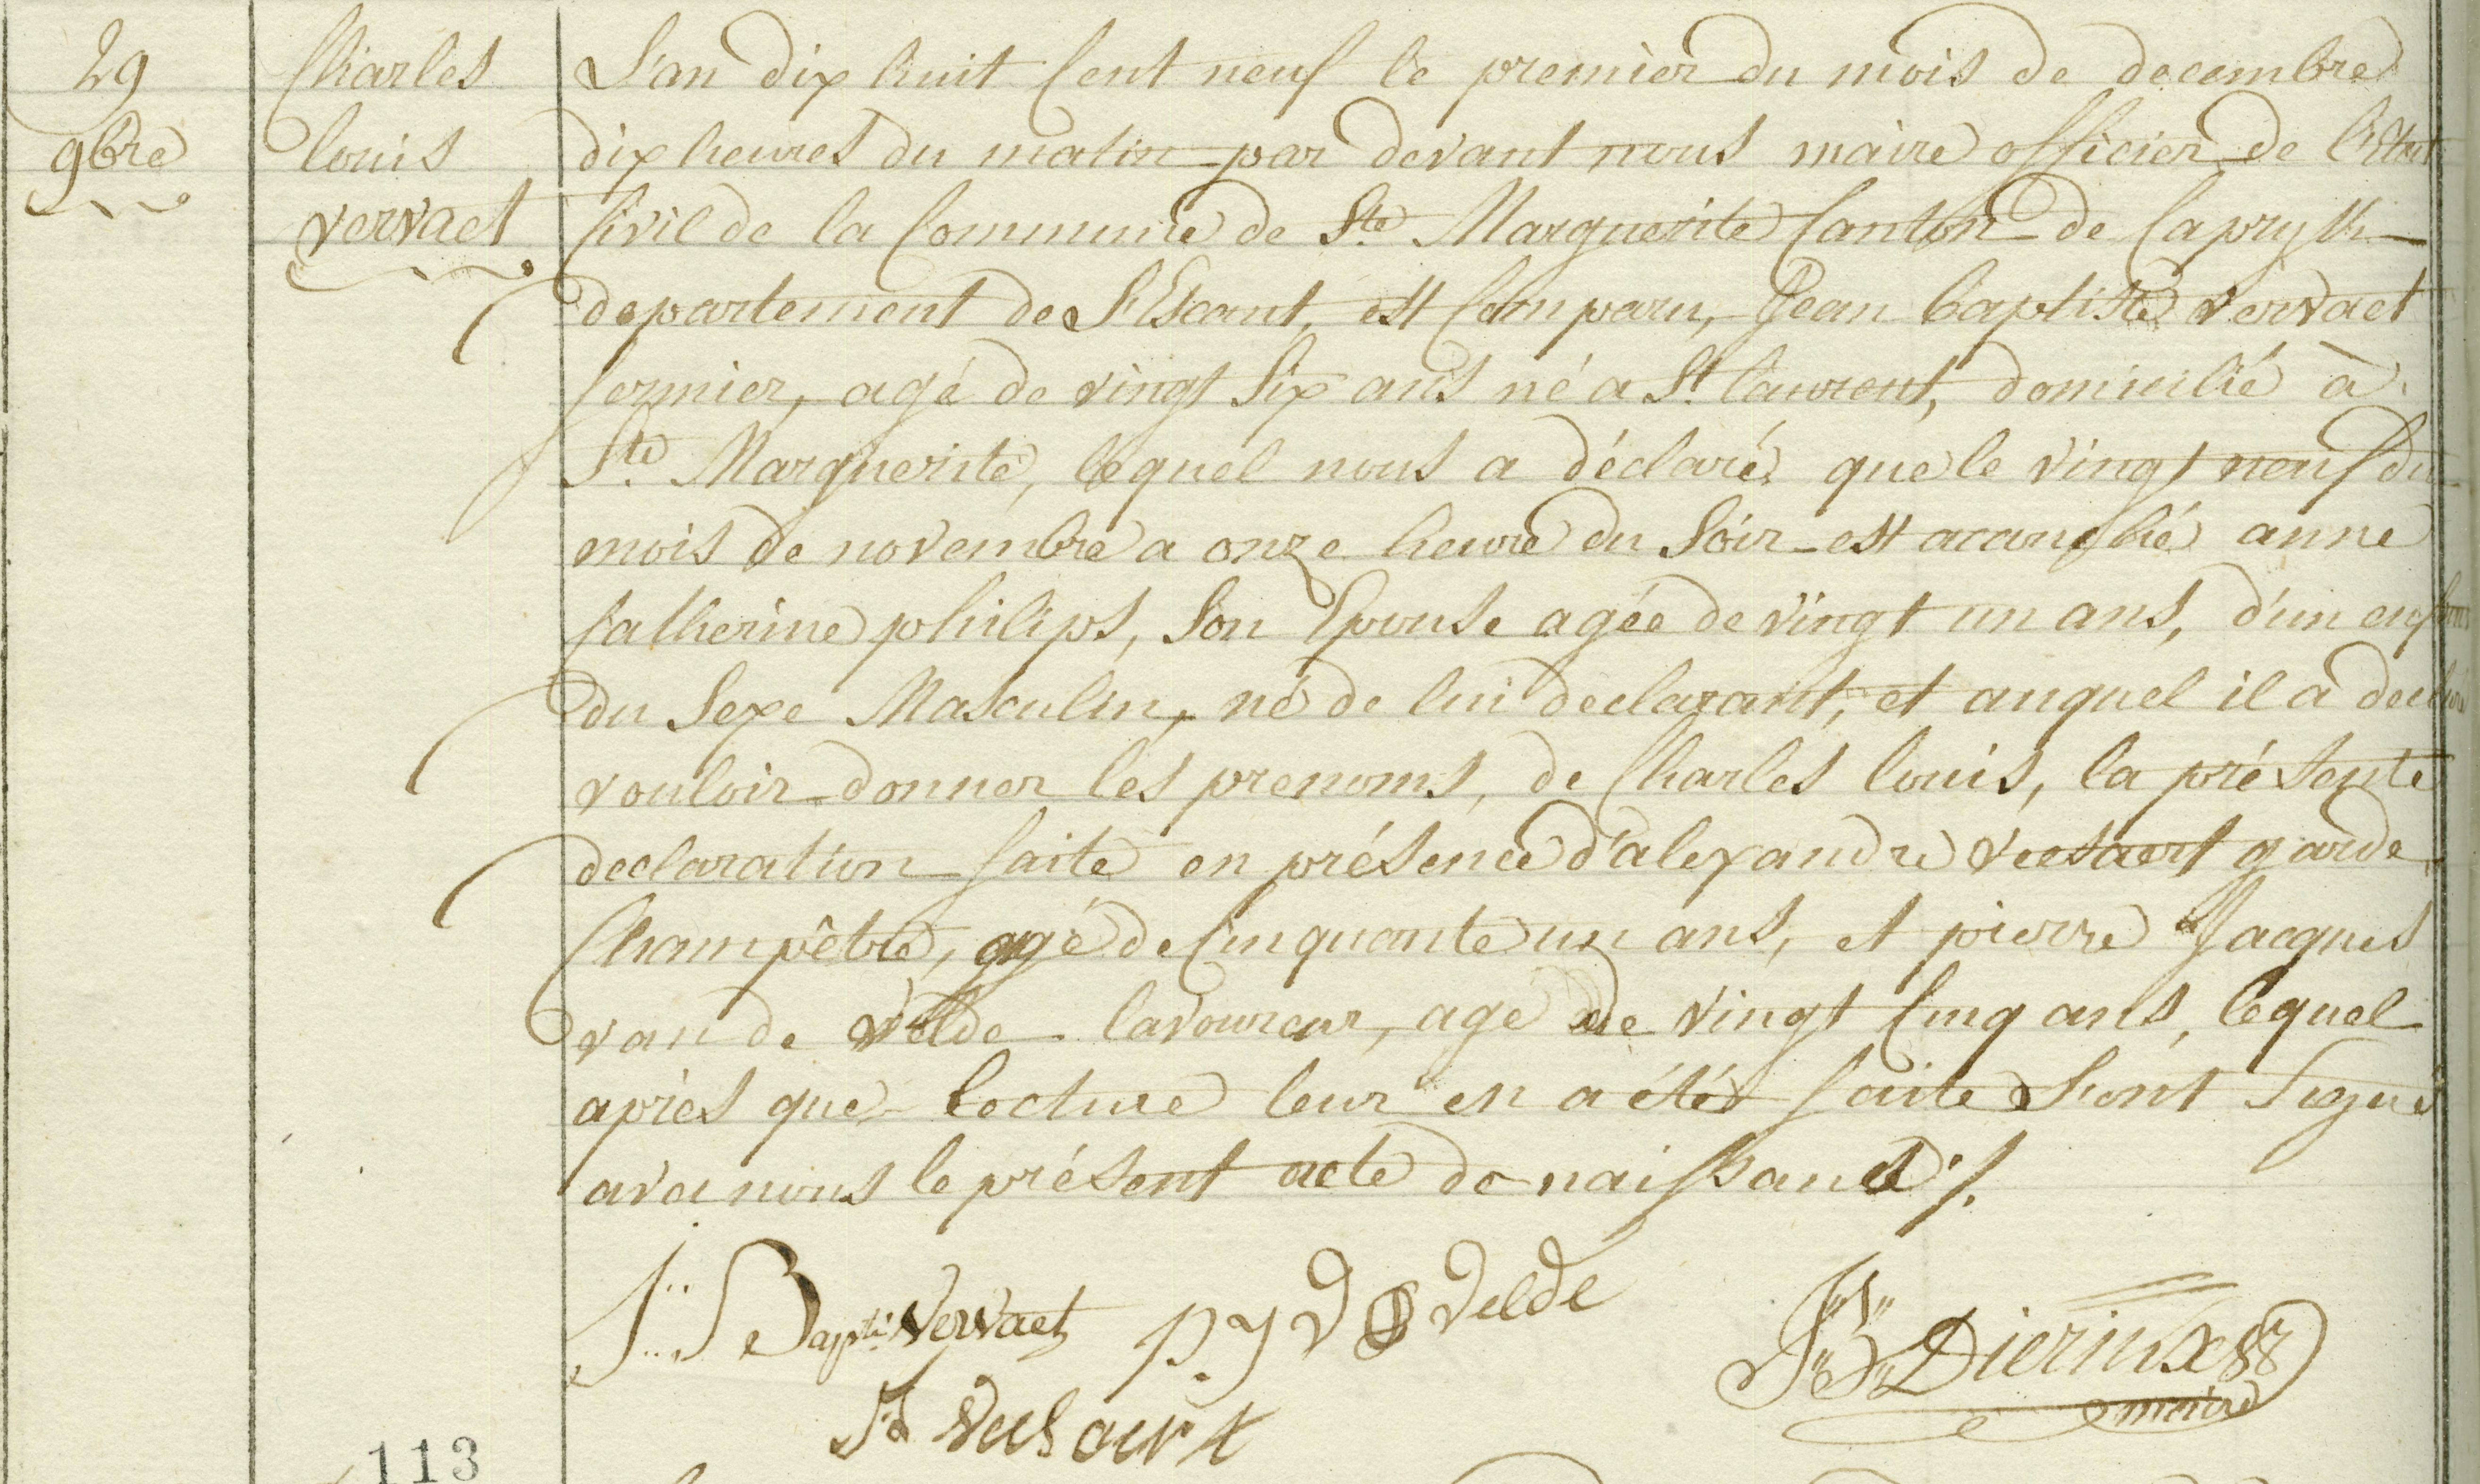 29
9bre
Charles
louis
vervaet
L'an dix huit Cent neuf le premier du mois de decembre
dix heures du matin par devant nous maire officier de l'Etat
Civil de la Commune de Ste Marguerite Canton de Capryk
departement de L'Escaut, est Comparu, Jean baptiste vervaet
fermier, agé de vingt Six ans né a St laurent, domicilié à
Ste Marguerite, lequel nous a déclaré que le vingt neuf du
mois de novembre a onze heure du Soir est acauchée anne
Catherine philips, Son Epouse agée de vingt un ans, d'un enfant
du Sexe Masculin, né de lui declarant, et auquel il a declaré
vouloir donner les prenoms, de Charles louis, la présente
declaration faite en présence d'alexandre veesaert garde
Champêtre, agé de Cinquante un ans, et pierre Jacques
van de velde lavoureur, age de vingt Cinq ans, lequel
apriès que lecture leur en a été faite Sont Signé
avec nous le présent acte de naissance ./.
J: Se Bapti Vervaet
p. J V D Velde
JB Dierinx
maire
Veesaert
113